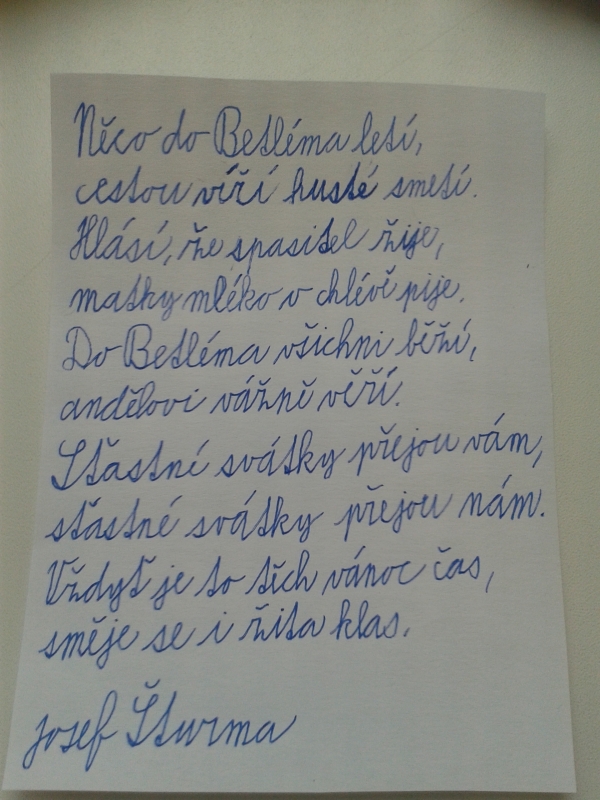 Něco do Betléma letí,
cestou víří husté smetí.
Hlásí, že spasitel žije,
matky mléko v chlévě pije.
Do Betléma všichni běží,
andělovi vážně věří.
Šťastné svátky přejou vám,
šťastné svátky přejou nám.
Vždyť je to těch vánoc čas,
směje se i žita klas.
Josef Šturma